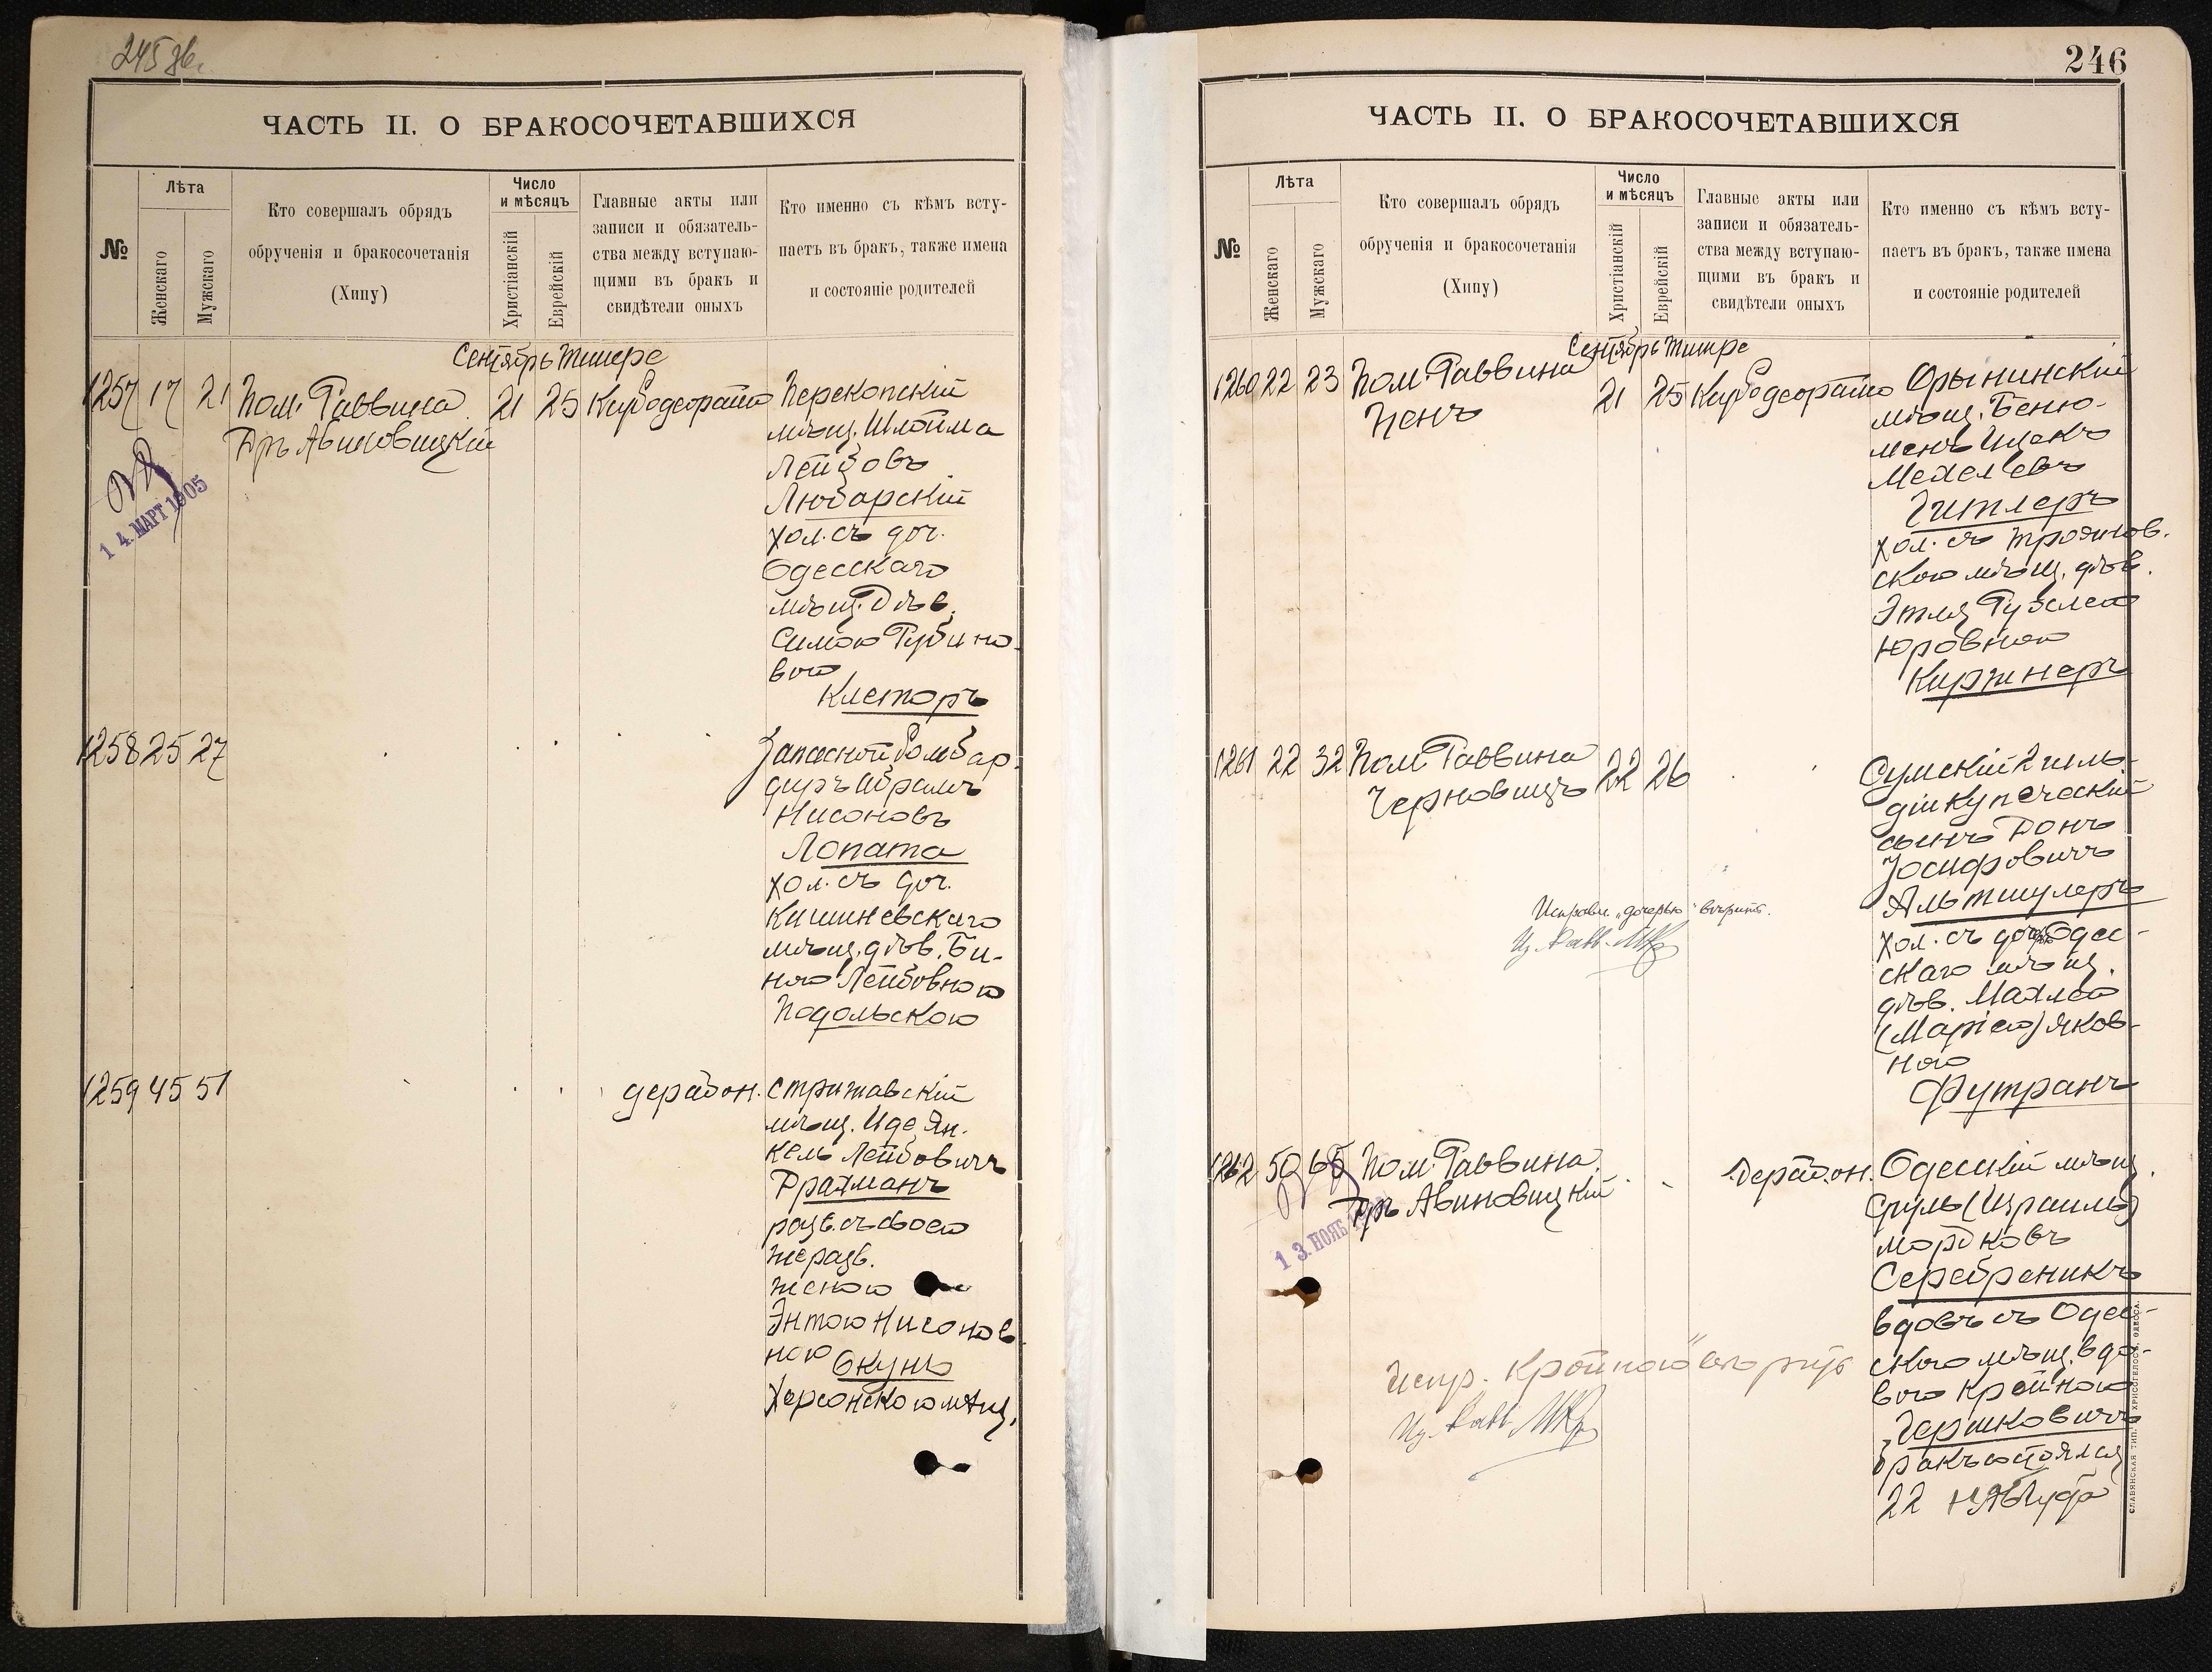 245 зв.
ЧАСТЬ II. О БРАКОСОЧЕТАВШИХСЯ
№
Лѣта
Женскаго
Мужскаго
Кто совершалъ обрядъ
обрученія и бракосочетанія
(Хипу)
Число
и мѣсяцъ
Христіанскій
Еврейскій
Главные акты или
записи и обязатель-
ства между вступаю-
щими въ бракъ и
свидѣтели оныхъ
Кто именно съ кѣмъ всту-
паетъ въ бракъ, также имена
и состояніе родителей
Сентябрь Тишре
1257 17 21 Пом. Раввина 21 25
Гръ Авиновицкій
14. МАРТ 1905
Перекопскій
мѣщ. Шлойма
Лейбовъ
Любарскій
хол. съ доч.
Одесскаго
мѣщ. Дѣв.
Симою Рубино-
вою
Клеторъ
1258 25 27
Запасной бомбар-
диръ Абрамъ
Нисоновъ
Лопата
хол. съ доч.
Кишиневскаго
мѣщ. дѣв. Би-
ною Лейбовною
Подольскою
1259 45 51
дерабон.
Стрижавскій
мѣщ. Иде Ян-
кель Лейбовичъ
Фратманъ
разв. съ своею
же разв.
женою
Энтою Нисонов-
ною Окунь
Херсонскою мѣщ.
246
ЧАСТЬ II. О БРАКОСОЧЕТАВШИХСЯ
№
Лѣта
Женскаго
Мужскаго
Кто совершалъ обрядъ
обрученія и бракосочетанія
(Хипу)
Число
и мѣсяцъ
Христіанскій
Еврейскій
Главные акты или
записи и обязатель-
ства между вступаю-
щими въ бракъ и
свидѣтели оныхъ
Кто именно съ кѣмъ всту-
паетъ въ бракъ, также имена
и состояніе родителей
Сентябрь Тишре
1260 22 23 Пом. Раввина 21 25
Ценъ
Орынинскій
мѣщ. Беню-
менъ Ицекъ
Мехелевъ
Гитлеръ
хол. съ Троянов-
скою мѣщ. дѣв.
Этля Рухлею
Юровною
Киржнеръ
1261 22 32 Пом. Раввина 22 26
Черновицъ
Сумскій 2 гиль-
діи купеческій
сынъ Донъ
Іосифовичъ
Альтшулеръ
хол. съ дочерью Одес-
скаго мѣщ.
дѣв. Малкею
(Маріею) Яков-
ною
Футранъ
Исправл. „дочерью" вѣрить.
1262 50 65 Пом. Раввина
Гръ Авиновицкій
13. НОЯБ
дерабон.
Одесскій мѣщ.
Сруль (Израиль)
Мордковъ
Серебреникъ
вдовъ съ Одес-
скою мѣщ. вдо-
вою Крейною
Гершковичъ
бракъ состоялся
22
Испр. „Крейною"
СЛАВЯНСКАЯ ТИП. Н. ХРИСОГЕЛОСЪ, ОДЕССА.